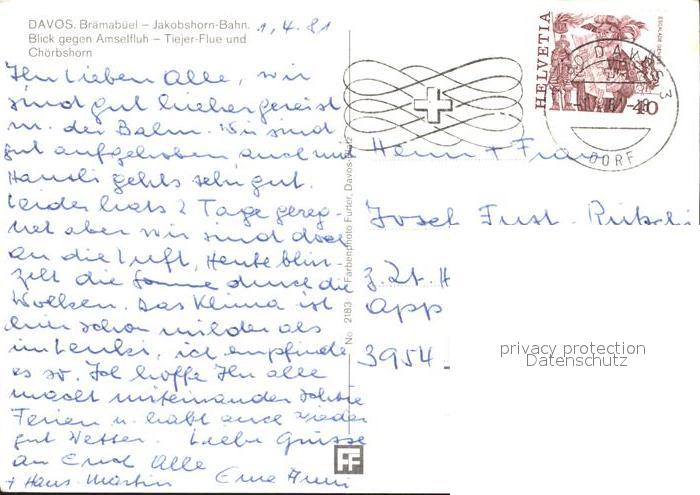 DAVOS. Brämabüel – Jakobshorn-Bahn.
Blick gegen Amselfluh – Tiejer-Flue und
Chörbshorn
1.4.81
Ihr Lieben Alle, wir
sind gut hiehergereist
m. der Bahn. Wir sind
gut aufgehoben, auch mit
Hansli gehts sehr gut.
Leider hats 2 Tage gereg-
net aber wir sind doch
an die Luft, Heute blin-
zelt die Sonne durch die
Wolken. Das Klima ist
hier schon milder als
, ich empfinde
es so. Ich hoffe Ihr alle
macht miteinander schöne
Ferien u. habt auch wieder
gut Wetter. Liebe Grüsse
an Euch Alle
+ Hans-Martin
No. 2183 Farbenphoto Furter, Davos-Platz
HELVETIA
40
ESCALADE GENÈVE
DAVOS 3
DORF
Herrn + Frau
Josef Fust-
z. Zt. H
App
3954
privacy protection
Datenschutz
FF